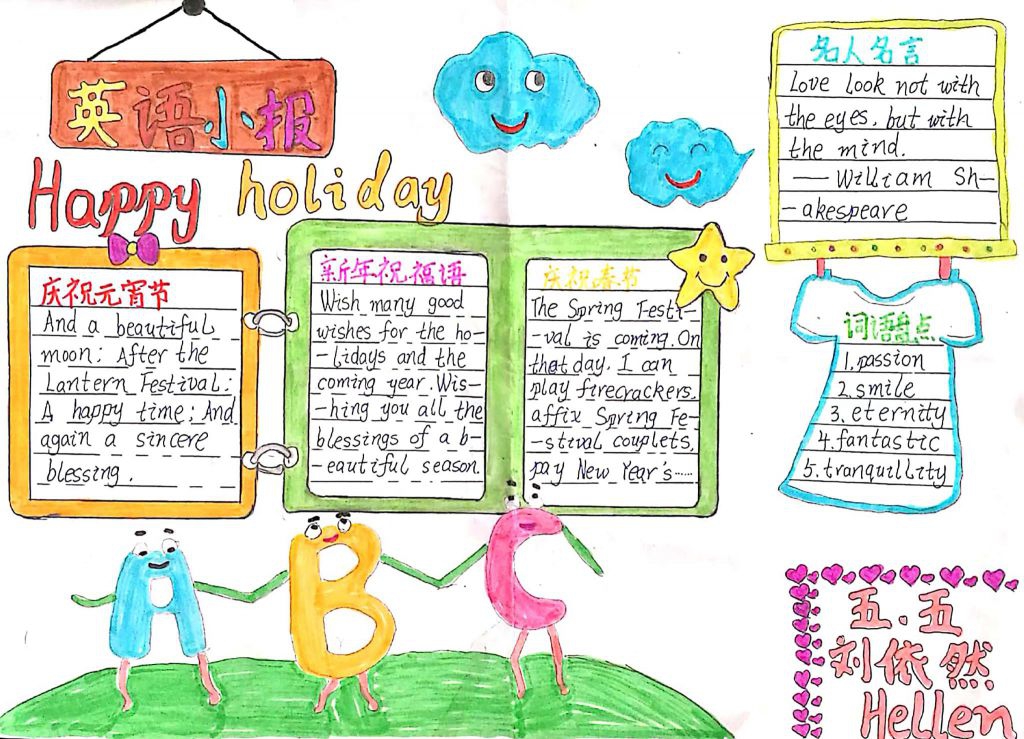 英语小报
Happy holiday
庆祝元宵节
And a beautiful
moon; After the
Lantern Festival;
A happy time; And
again a sincere
blessing.
新年祝福语
Wish many good
wishes for the ho-
-lidays and the
coming year. Wis-
-hing you all the
blessings of a b-
-eautiful season.
庆祝春节
The Spring Festi-
-val is coming. On
that day, I can
play firecrackers,
affix Spring Fe-
-stival couplets,
pay New Year's……
名人名言
Love look not with
the eyes, but with
the mind.
—— William Sh-
-akespeare
词语盘点
1. passion
2. smile
3. eternity
4. fantastic
5. tranquillity
A B C
五.五
刘依然
Hellen